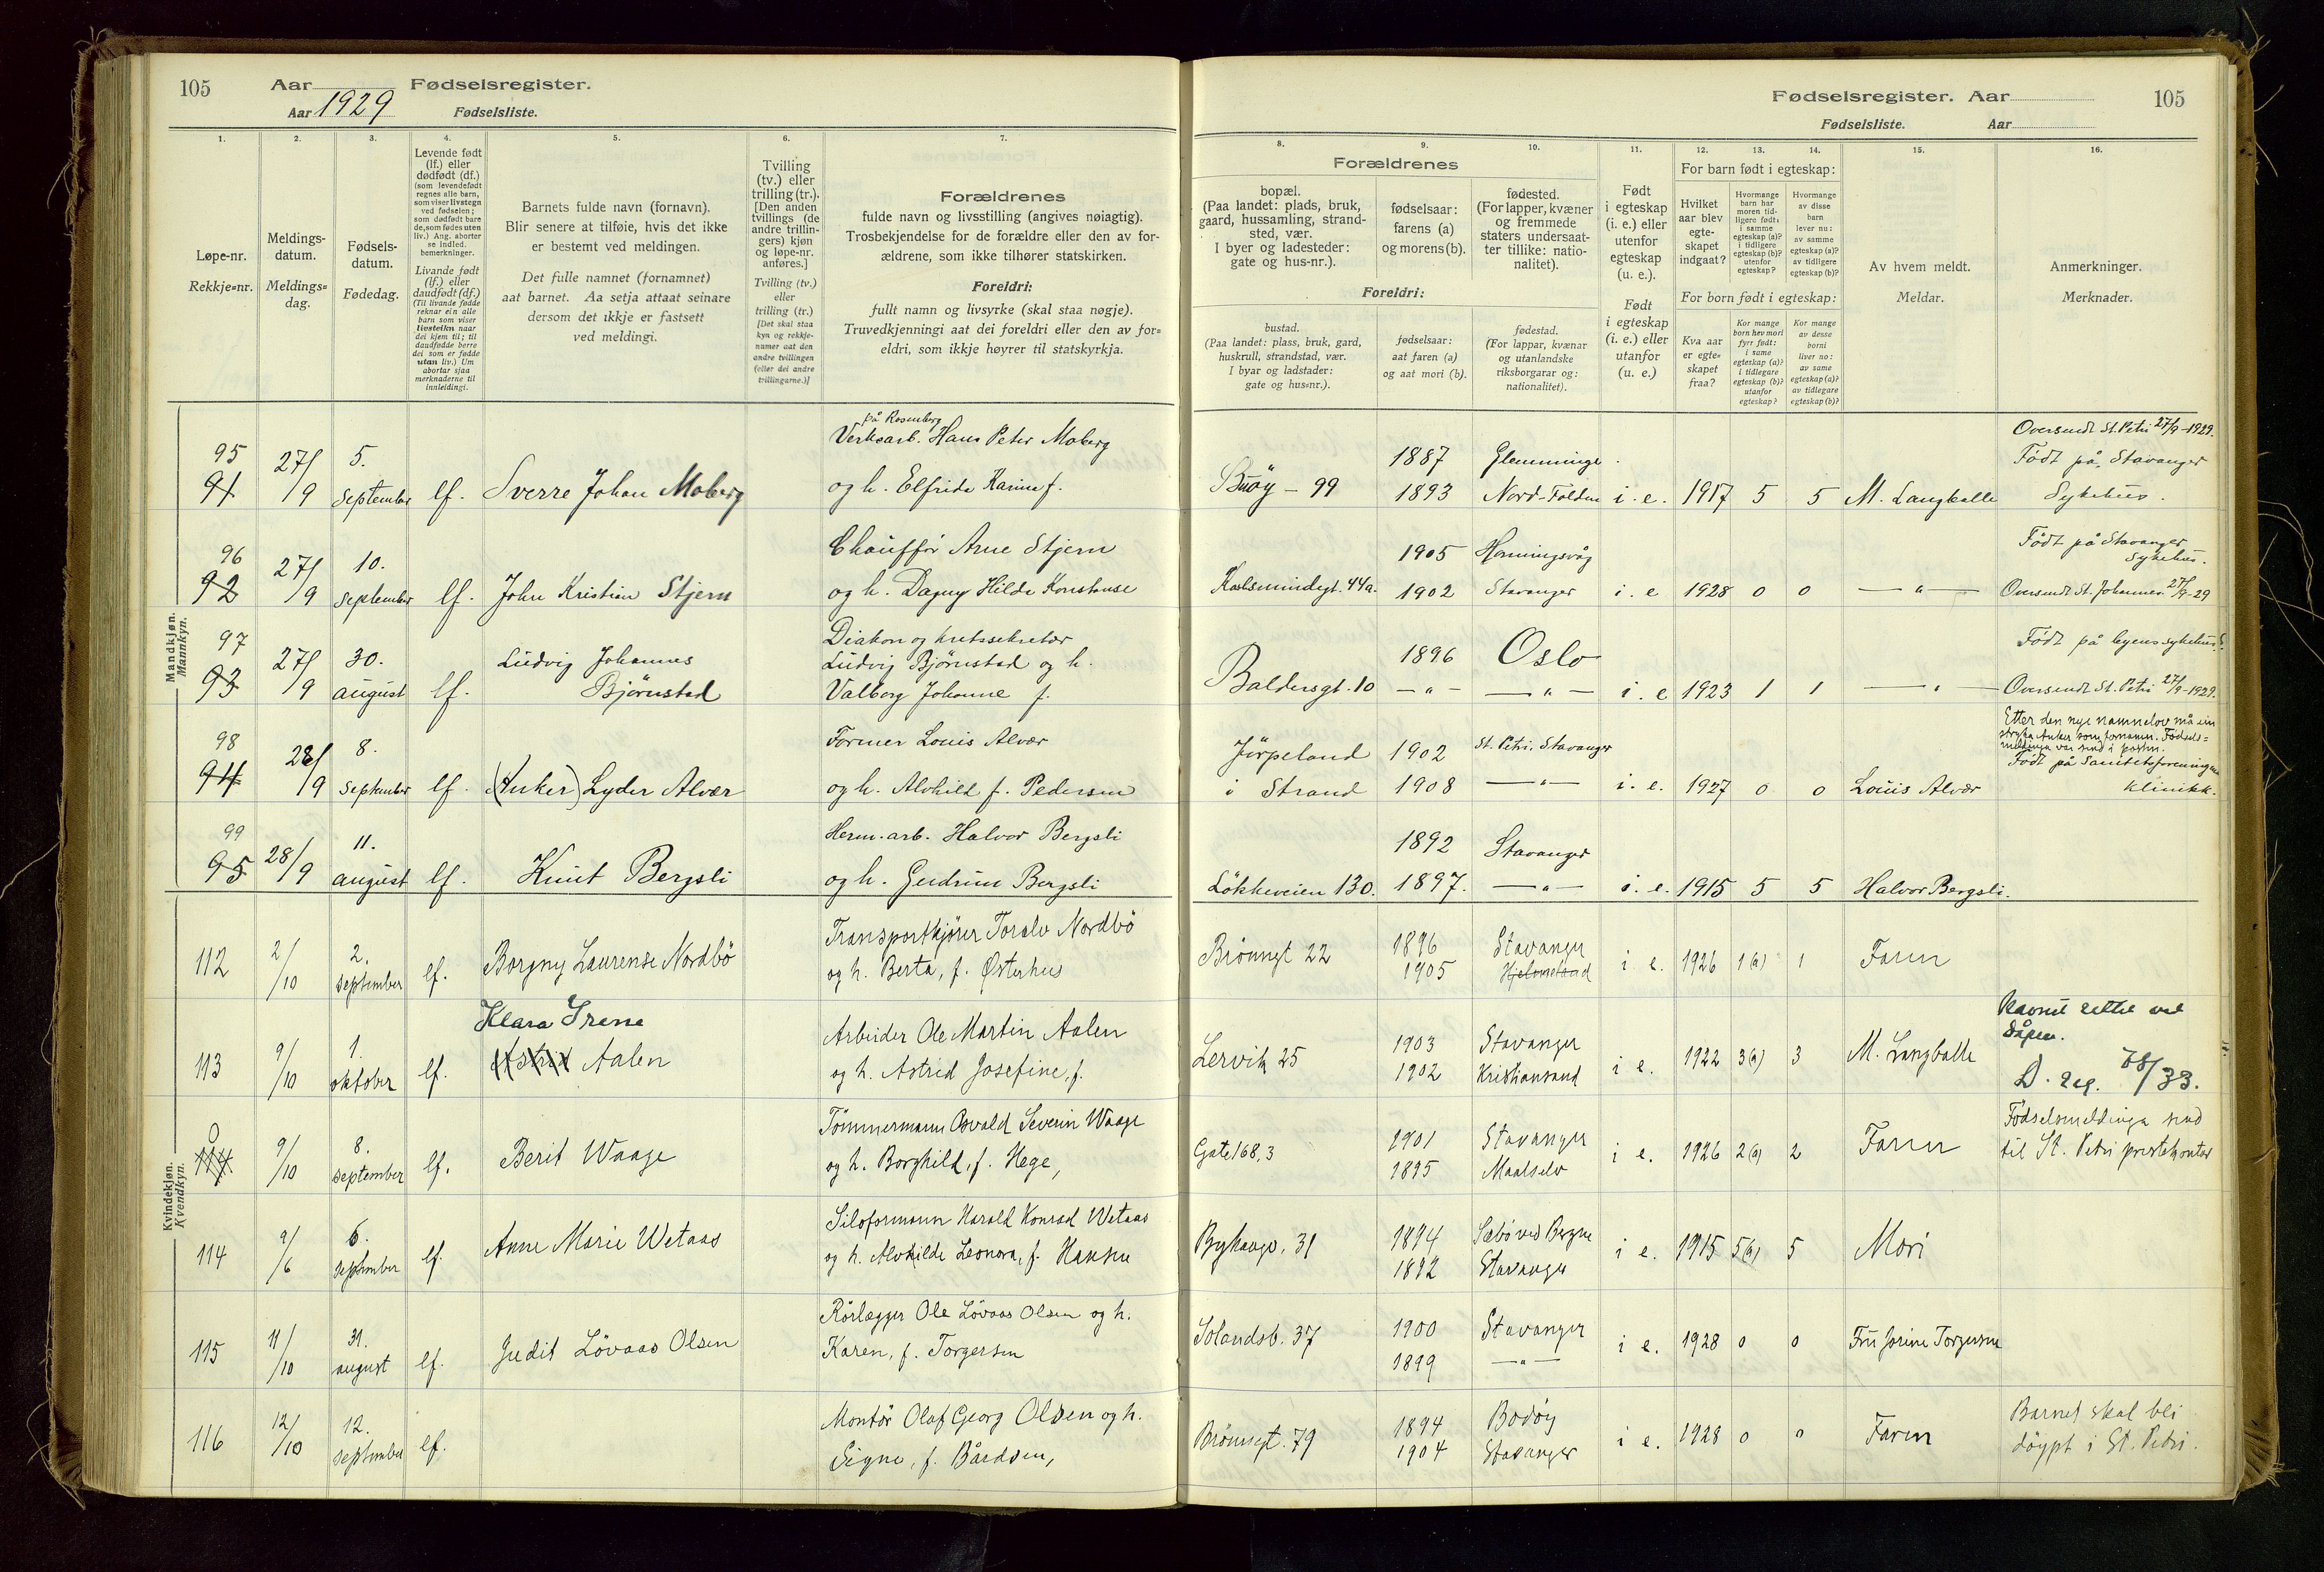 105
Aar
Fødselsregister.
Aar 1929
Fødselsliste.
Fødselsregister. Aar
105
Fødselsliste.
Aar
1.
Løpe-nr.
Rekkje=nr.
2.
Meldings-
datum.
Meldings=
dag.
3.
Fødsels-
datum.
Fødedag.
4.
Levende født
(lf.) eller
dødfødt (df.)
(som levendefødt
regnes alle barn,
som viser livstegn
ved fødselen;
som dødfødt bare
de, som fødes uten
liv.) Ang. aborter
se indled.
bemerkninger.
Livande født
(lf.) eller
daudfødt (df.)
(Til livande fødde
reknar ein alle
born som viser
livsteikn naar
dei kjem til; til
daudfødde berre
dei som er fødde
utan liv.) Um
abortar sjaa
merknaderne til
innleidingi.
5.
Barnets fulde navn (fornavn).
Blir senere at tilføie, hvis det ikke
er bestemt ved meldingen.
Det fulle namnet (fornamnet)
aat barnet. Aa setja attaat seinare
dersom det ikkje er fastsett
ved meldingi.
6.
Tvilling
(tv.) eller
trilling (tr.).
[Den anden
tvillings (de
andre trillin-
gers) kjøn
og løpe-nr.
anføres.]
Tvilling (tv.)
eller
trilling (tr.)
[Det skal staa
kyn og rekkje-
numer aat den
andre tvillingen
(eller dei andre
trillingarne.)]
7.
Forældrenes
fulde navn og livsstilling (angives nøiagtig).
Trosbekjendelse for de forældre eller den av for-
ældrene, som ikke tilhører statskirken.
Foreldri:
fullt namn og livsyrke (skal staa nøgje).
Truvedkjenningi aat dei foreldri eller den av for=
eldri, som ikkje høyrer til statskyrkja.
Forældrenes
8.
bopæl.
(Paa landet: plads, bruk,
gaard, hussamling, strand-
sted, vær.
I byer og ladesteder:
gate og hus-nr.).
Foreldri:
bustad.
(Paa landet: plass, bruk, gard,
huskrull, strandstad, vær.
I byar og ladstader:
gate og hus=nr.).
9.
fødselsaar:
farens (a)
og morens (b).
fødselsaar:
aat faren (a)
og aat mori (b).
10.
fødested.
(For lapper, kvæner
og fremmede
staters undersaat-
ter tillike: natio-
nalitet).
fødestad.
(For lappar, kvænar
og utanlandske
riksborgarar og:
nationalitet).
11.
Født
i egteskap
(i. e.) eller
utenfor
egteskap
(u. e.).
Født
i egteskap
(i. e.) eller
utanfor
(u. e.)
For barn født i egteskap:
12.
Hvilket
aar blev
egte-
skapet
indgaat?
For born født i egteskap:
Kva aar
er egte=
skapet
fraa?
13.
Hvormange
barn har
moren tid-
ligere født:
i samme
egteskap (a)?
i tidligere
egteskap (b)?
utenfor
egteskap?
Kor mange
born hev mori
fyrr født:
i same
egteskap (a)?
i tidlegare
egteskap (b)?
utanfor
egteskap?
14.
Hvormange
av disse
barn
lever nu:
av samme
egteskap (a)?
av tidligere
egteskap (b)?
Kor mange
av desse
borni
liver no:
av same
egteskap (a)?
av tidlegare
egteskap (b)?
15.
Av hvem meldt.
Meldar.
16.
Anmerkninger.
Merknader.
Mandkjøn.
Mannkyn.
95
91 27/9 5. september lf. Sverre Johan Moberg
på Rosenberg
Verksarb. Hans Peter Moberg
og h. Elfrida Karine f.
Buöy - 99
1887 Glemminge.
1893 Nord-Folden i. e. 1917 5 5 M. Langballe
Oversendt St. Petri 27/9-1929.
Födt på Stavanger
Sykehus.
96
92 27/9 10. september lf. John Kristian Stjern
Chaufför Arne Stjern
og h. Dagny Hilda Konstanse
Karlsmindegt. 44a.
1905 Honningsvåg
1902 Stavanger i. e 1928 0 0 — " —
Födt på Stavanger
Sykehus.
Oversendt St. Johannes 27/9-29
97
93 27/9 30. august lf. Ludvig Johannes
Bjørnstad
Diakon og kretssekretær
Ludvig Bjørnstad og h.
Valborg Johanne f.
Baldersgt. 10
1896 Oslo
— " — — " — i. e 1923 1 1 — " —
Födt på byens sykehus.
Oversendt St. Petri 27/9-1929.
98
94 28/9 8. september lf. (Anker) Lyder Alvær
Former Louis Alvær
og h. Alvhild f. Pedersen
Jörpeland
i Strand
1902 St. Petri, Stavanger
1908 — " — i. e. 1927 0 0 Louis Alvær
Etter den nye namnelov må ein
stryka Anker som fornamn. Födsels=
meldinga var send i posten.
Födt på Sanitetsforeningens
klinikk.
99
95 28/9 11. august lf. Knut Bergsli
Herm. arb. Halvor Bergsli
og h. Gudrun Bergsli
Lökkeveien 130.
1892 Stavanger
1897. — " — i. e. 1915 5 5 Halvor Bergsli.
Kvindekjøn.
Kvendkyn.
112 2/10 2. september lf. Borgny Laurense Nordbö
Transportkjörer Toralv Nordbö
og h. Berta, f. Østerhus
Brönngt 22
1896 Stavanger
1905 Hjelmeland i e. 1926 1(a) 1 Faren
113 9/10 1. oktober lf. Klara Irene
Astrid Aalen
Arbeider Ole Martin Aalen
og h. Astrid Josefine, f.
Lervik 25
1903 Stavanger
1902 Kristiansand i e. 1922 3(a) 3 M. Langballe
Navnet rettet ved
dåpen.
D. reg. 78/33.
0
114 9/10 8. september lf. Berit Waage
Tömmermann Osvald Severin Waage
og h. Borghild, f. Hege,
Gate 168, 3
1901 Stavanger
1895 Maalselv i e. 1926 2(a) 2 Faren
Födselsmeldinga send
til St. Petri prestekontor
114 9/6 6. september lf. Anne Marie Wetaas
Siloformann Harald Konrad Wetaas
og h. Alvhilde Leonora, f. Hansen
Byhaugv. 31
1894 Sæbö ved Bergen
1892 Stavanger i e. 1915 5(a) 5 Mori
115 11/10 31. august lf. Judit Lövaas Olsen
Rörlegger Ole Lövaas Olsen og h.
Karen, f. Torgersen
Solandsb. 37
1900 Stavanger
1899 — " — i e. 1928 0 0 Fru Jorine Torgersen
116 12/10 12. september lf.
Montör Olaf Georg Olsen og h.
Signe, f. Bårdsen,
Brönngt. 79
1894 Bodöy
1904 Stavanger i e. 1928 0 0 Faren
Barnet skal bli
döypt i St. Petri.